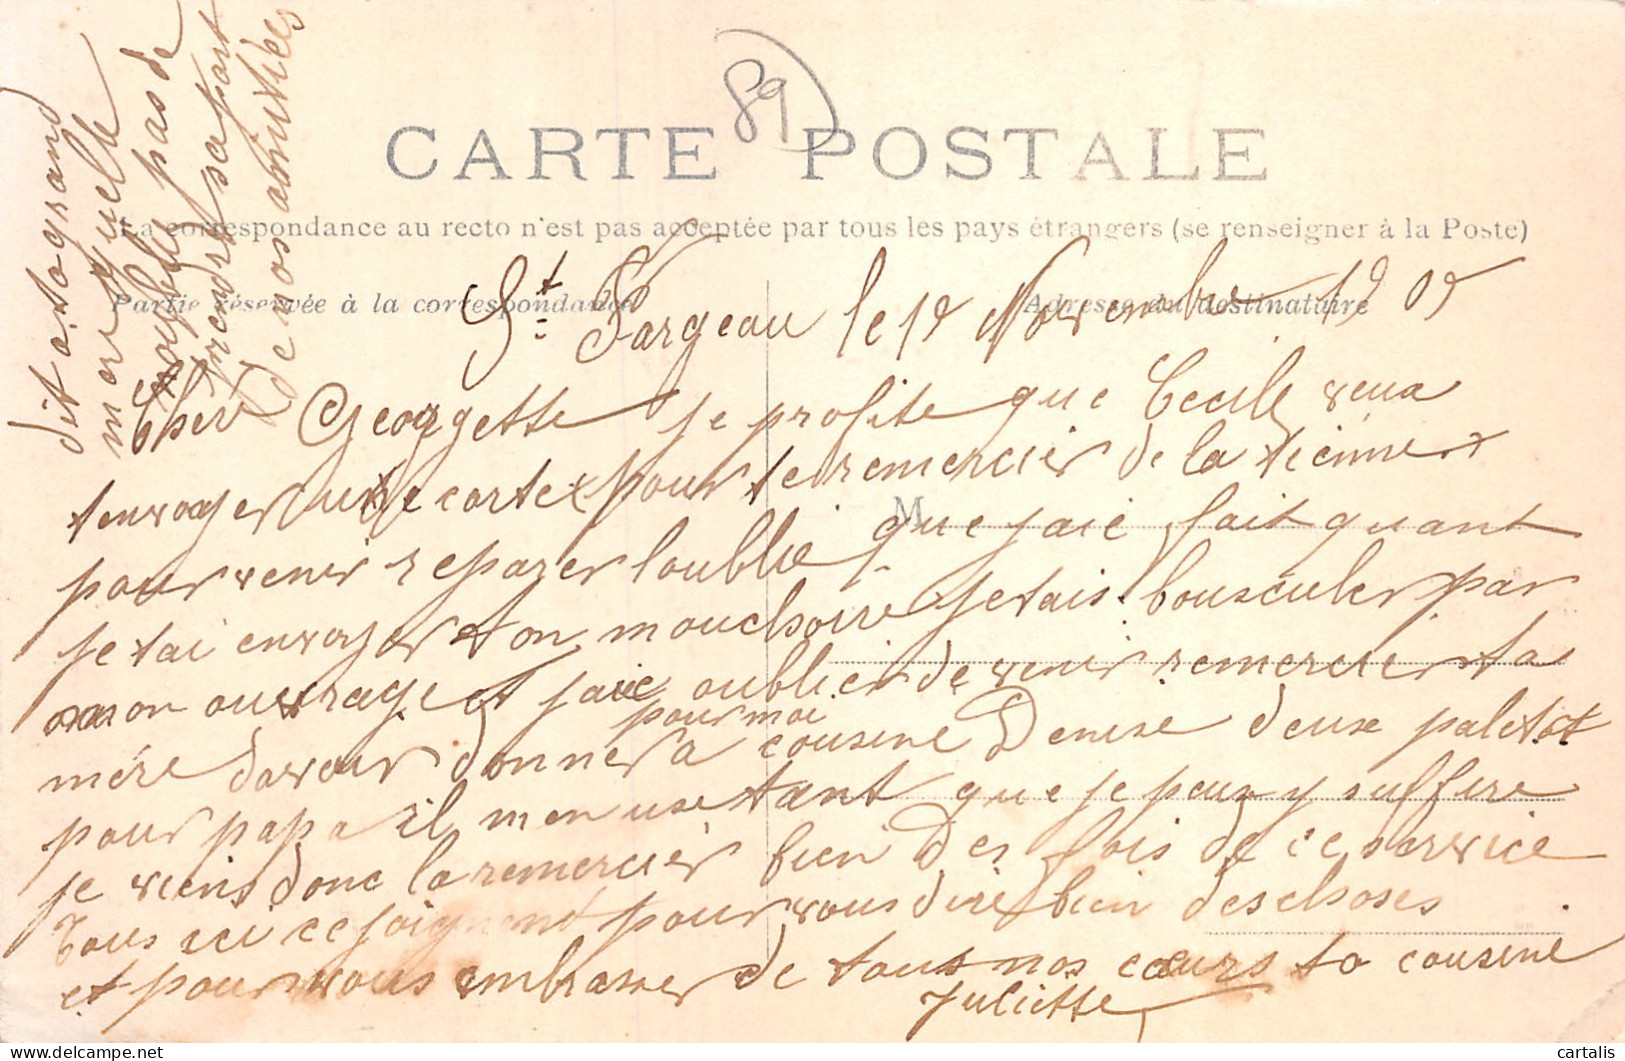 89
CARTE POSTALE
La correspondance au recto n'est pas acceptée par tous les pays étrangers (se renseigner à la Poste)
Partie réservée à la correspondance
Adresse du destinataire
M
St. Fargeau le 19 Novembre 1905
Cher Georgette je profite que Cecile veux
tenvoyer une carte pour te remercier de la tienne
pour venir reparer loublie que jaie fait quant
je tai envoyer ton mouchoire jetais bousculer par
mon ouvrage et jaie oublier de venir remercier ta
mére davoir donner a pour moi cousine Denise deux paletot
pour papa il men use tant que je peux y suffire
je viens donc la remercier bien des fois de ce service
Tous ici ce joignent pour vous dire bien des choses
et pour vous embrasser de tous nos cœurs ta cousine
Juliette
dit a ta grand
mer quelle
noublie pas de
prendre sa part
de nos amitiées
cartalis